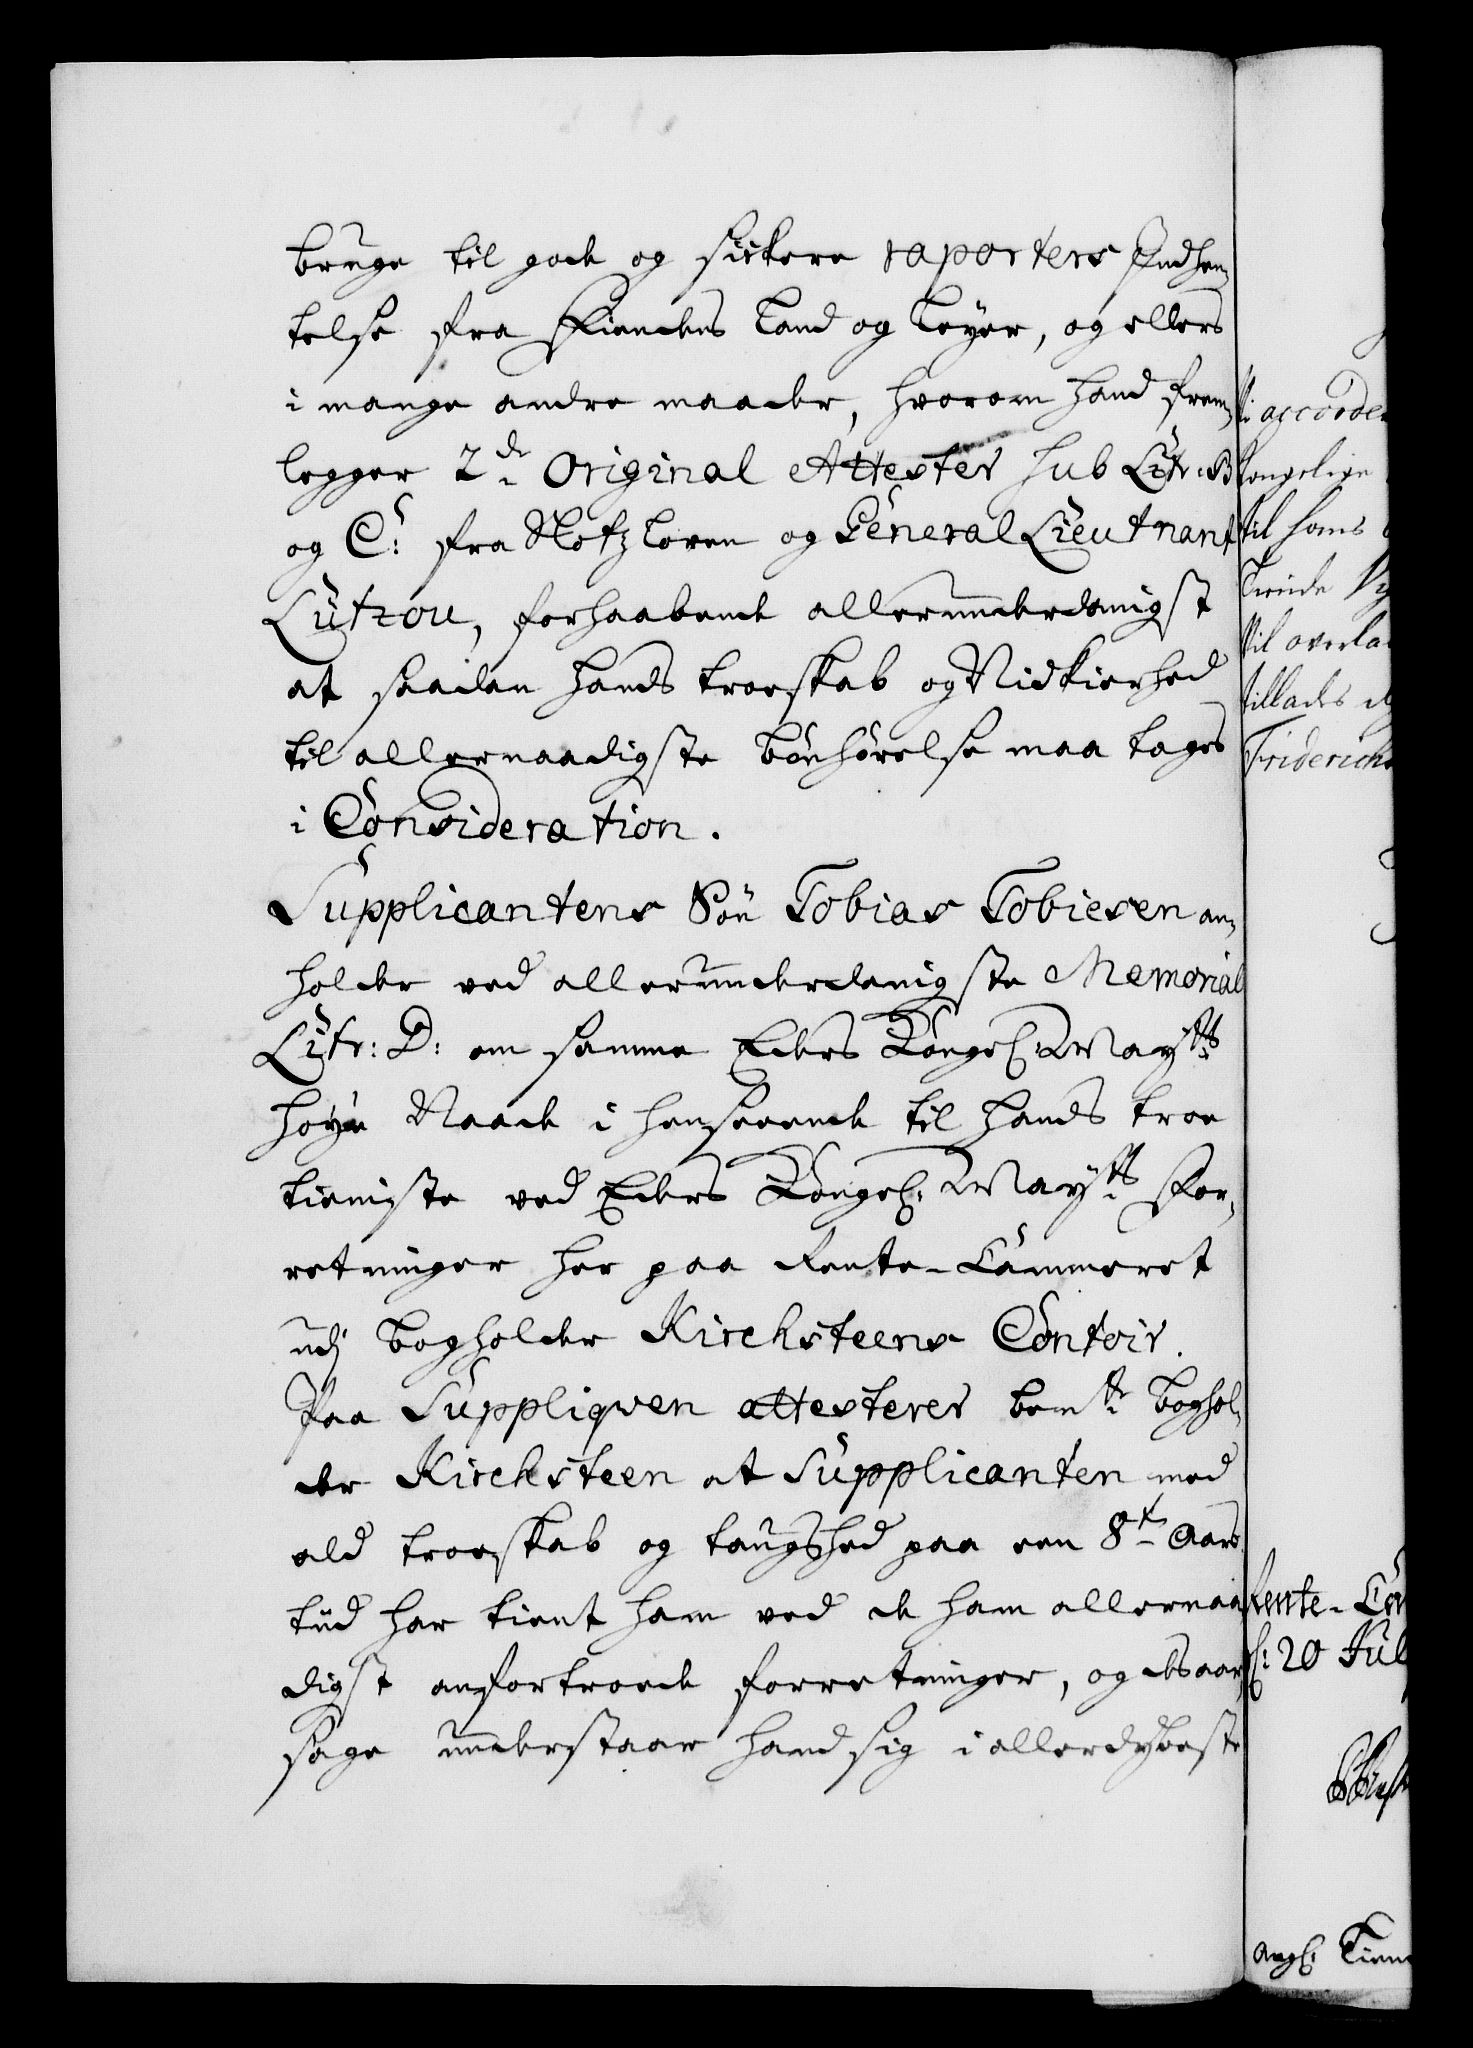 bruge til gode og sickere raporters Indhen,
telse fra Fiendens Land og Leyer, og ellers
i mange andre maader, hvorom hand frem,
legger 2de Original Attester sub Litr: B
og C: fra Slotzloven og General Lieutnant
Lützou, forhaabende allerunderdanigst
at saadan hands troeskab og Nidkierhed
til allernaadigste bønhørelse maa tages
i Consideration.
Supplicantens Søn Tobias Tobiesen an,
holder ved allerunderdanigste Memorial
Litr: D: om samme Eders Kongel: Mayts
høye Naade i henseende til hands troe
tieniste ved Eders Kongel: Mayts For,
retninger her paa Rente-Cammeret
udj bogholder Kirchsteens Contoir.
Paa Suppliqven attesterer bemte boghol,
der Kirchsteen at Supplicanten med
ald troeskab og taugshed paa een 8t Aars
tiid har tient ham ved de ham allernaa
digst anfortroede forretninger, og desaar,
sage understaar hand sig i allerdybeste
accorde
kongelige
til hans
Tiende
til overla
tillades
Friderichs
Rente-Ca
20 Jul